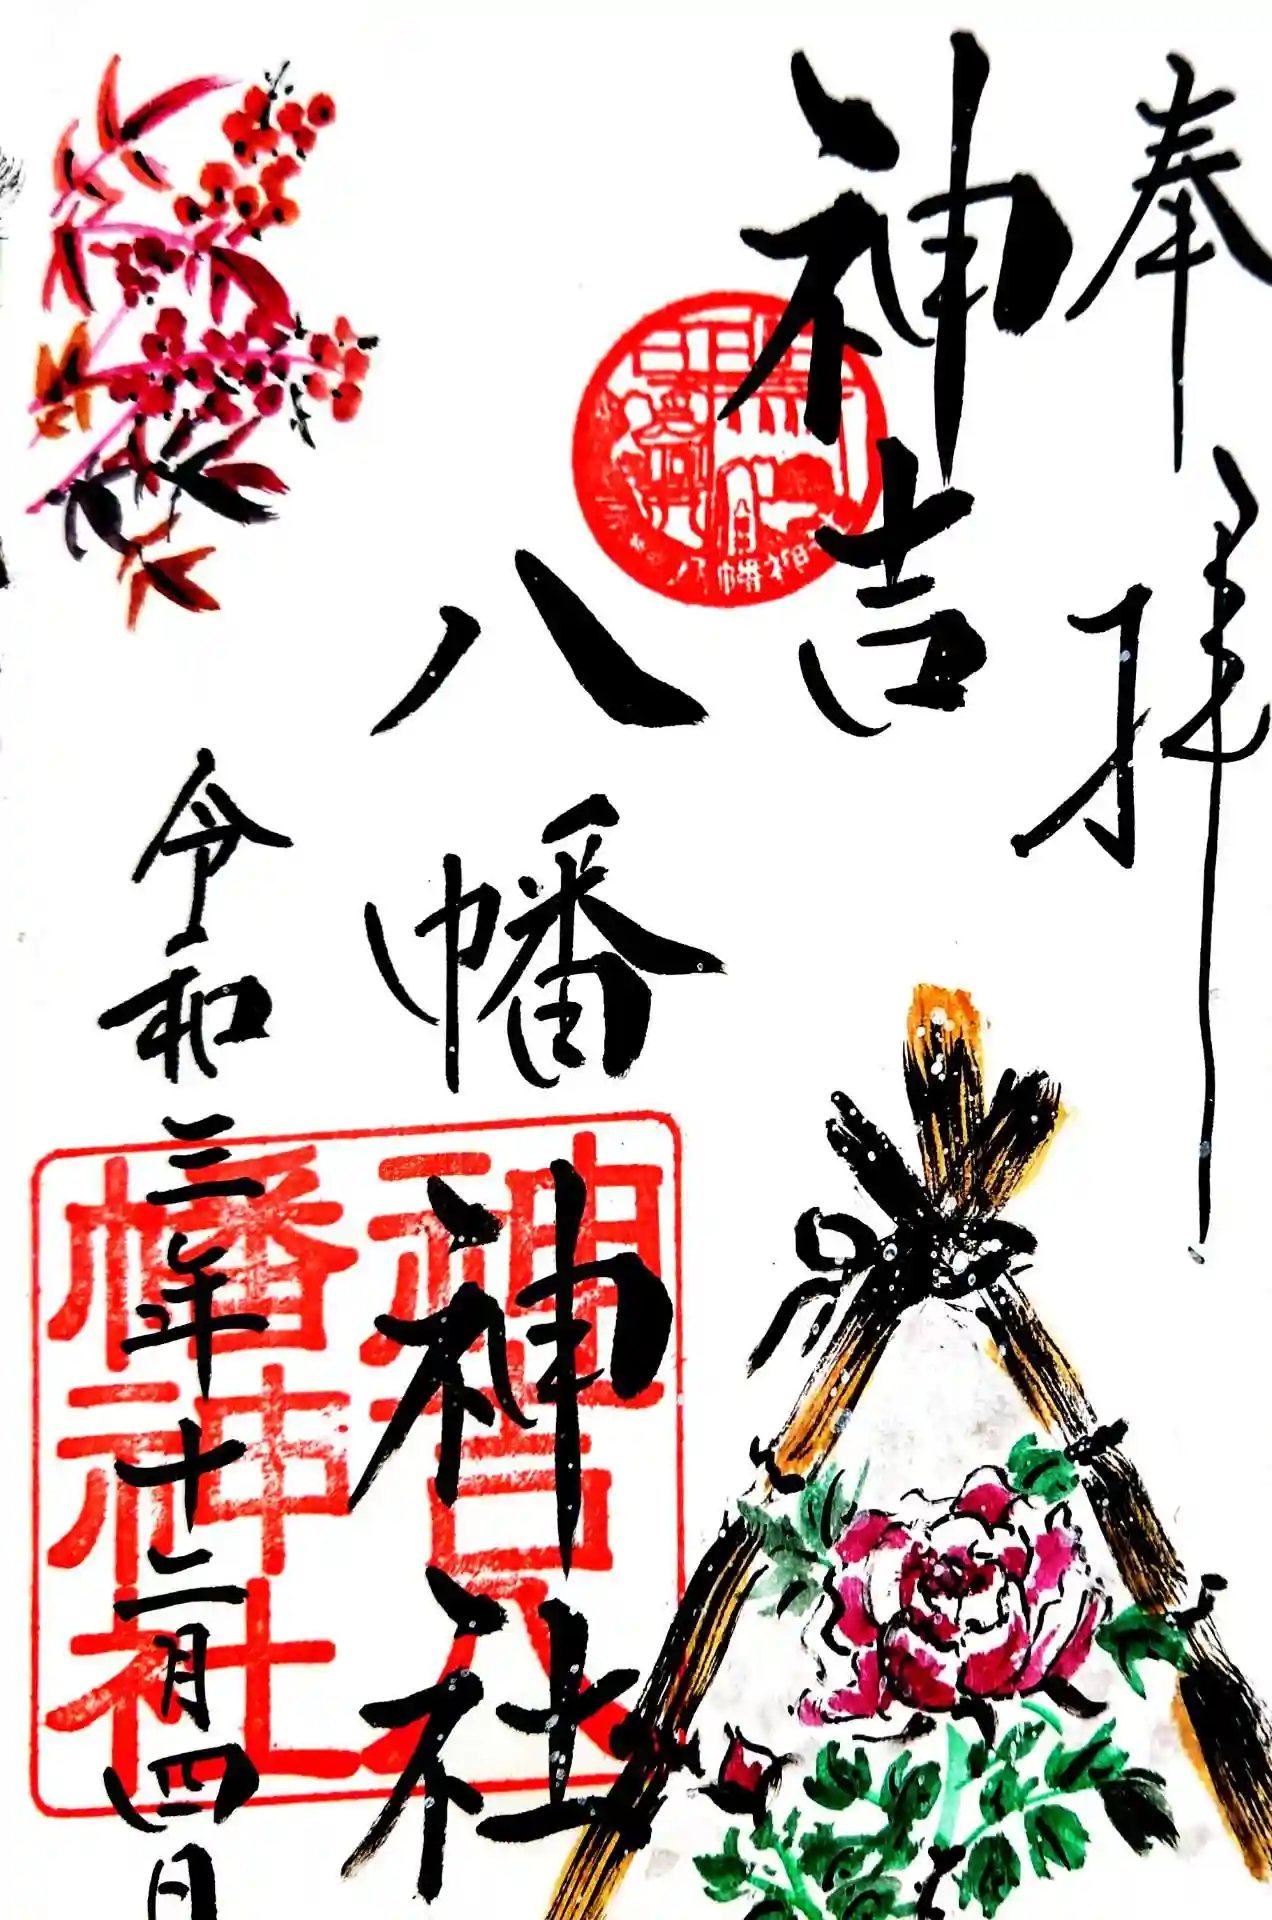 奉拝
神吉
八幡神社
令和三年十二月四日
神吉八
幡神社
八幡神社